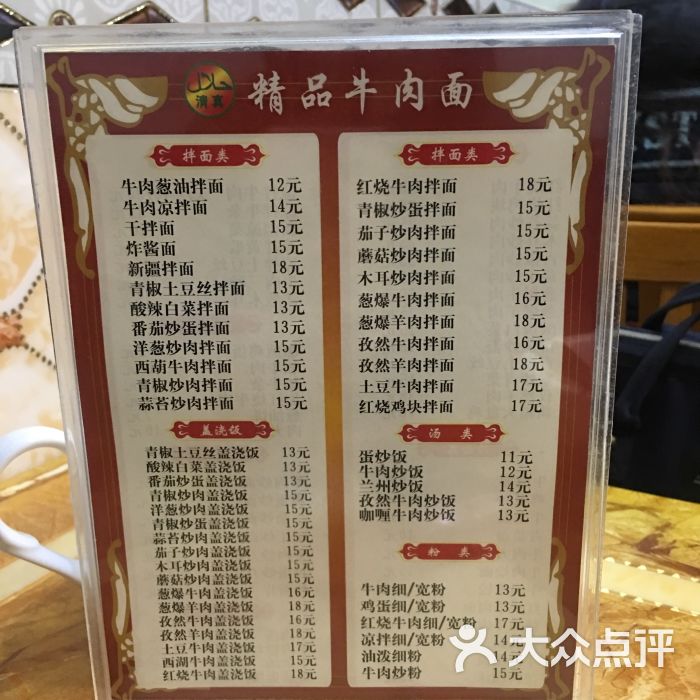 حلال
清真
精品牛肉面
拌面类
牛肉葱油拌面 12元
牛肉凉拌面 14元
干拌面 15元
炸酱面 15元
新疆拌面 18元
青椒土豆丝拌面 13元
酸辣白菜拌面 13元
番茄炒蛋拌面 13元
洋葱炒肉拌面 15元
西葫牛肉拌面 15元
青椒炒肉拌面 15元
蒜苔炒肉拌面 15元
盖浇饭
青椒土豆丝盖浇饭 13元
酸辣白菜盖浇饭 13元
番茄炒蛋盖浇饭 13元
青椒炒肉盖浇饭 15元
洋葱炒肉盖浇饭 15元
青椒炒蛋盖浇饭 15元
蒜苔炒肉盖浇饭 15元
茄子炒肉盖浇饭 15元
木耳炒肉盖浇饭 15元
蘑菇炒肉盖浇饭 15元
葱爆牛肉盖浇饭 16元
葱爆羊肉盖浇饭 18元
孜然牛肉盖浇饭 16元
孜然羊肉盖浇饭 18元
土豆牛肉盖浇饭 17元
西湖牛肉盖浇饭 15元
红烧牛肉盖浇饭 18元
拌面类
红烧牛肉拌面 18元
青椒炒蛋拌面 15元
茄子炒肉拌面 15元
蘑菇炒肉拌面 15元
木耳炒肉拌面 15元
葱爆牛肉拌面 16元
葱爆羊肉拌面 18元
孜然牛肉拌面 16元
孜然羊肉拌面 18元
土豆牛肉拌面 17元
红烧鸡块拌面 17元
汤类
蛋炒饭 11元
牛肉炒饭 12元
兰州炒饭 14元
孜然牛肉炒饭 13元
咖喱牛肉炒饭 13元
粉类
牛肉细/宽粉 13元
鸡蛋细/宽粉 13元
红烧牛肉细/宽粉 17元
凉拌细/宽粉 14元
油泼细粉 14元
牛肉炒粉 15元
大众点评